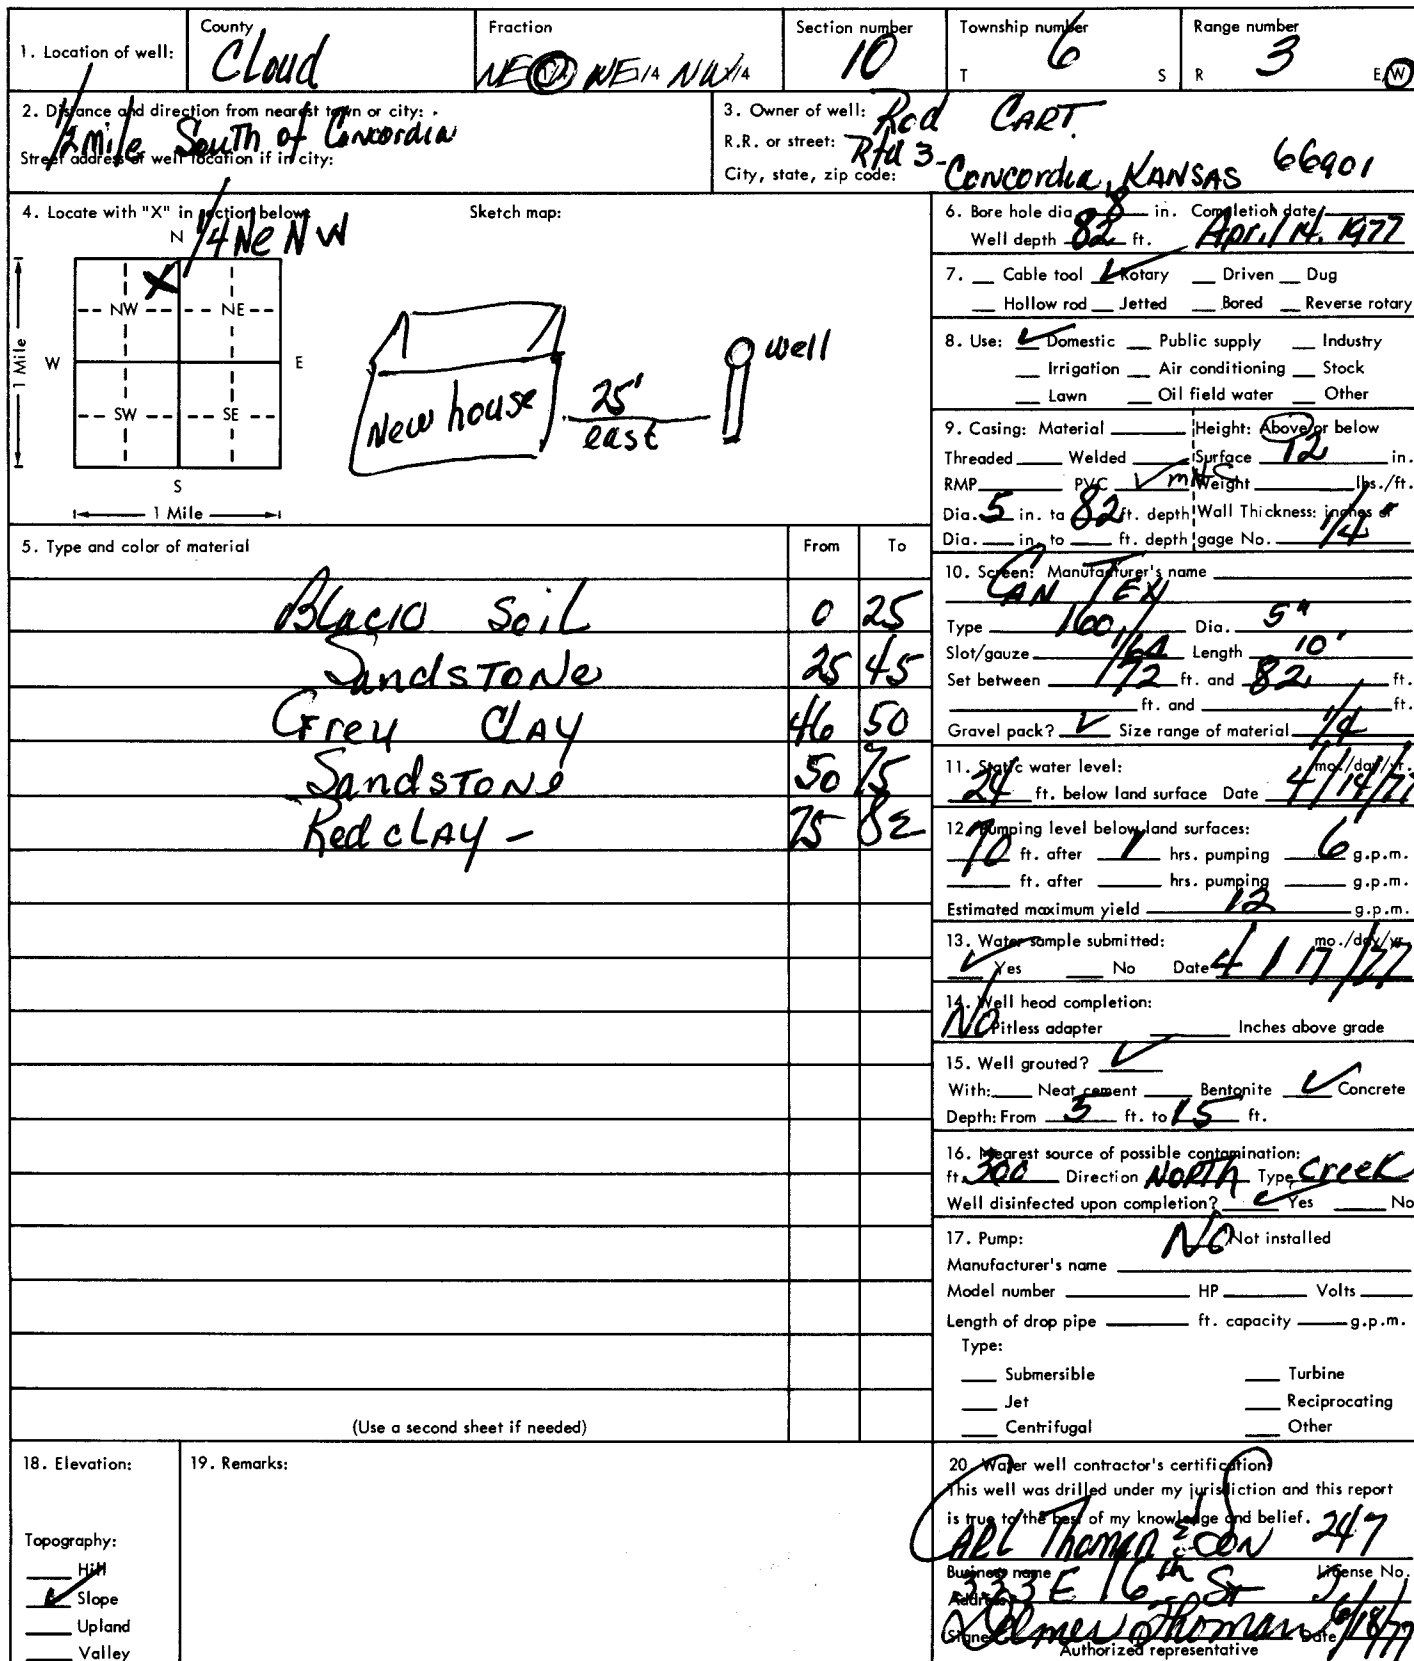 1. Location of well: County Cloud Fraction NE 1/4 NE 1/4 NW 1/4 Section number 10 Township number T 6 S Range number R 3 E/W
2. Distance and direction from nearest town or city:
1/2 mile South of Concordia
Street address of well location if in city:
3. Owner of well: Rod CART.
R.R. or street: Rfd 3-
City, state, zip code: Concordia, KANSAS 66901
4. Locate with "X" in section below: Sketch map:
1/4 Ne NW
N
X
NW NE
W E
SW SE
S
1 Mile
1 Mile
New house
25'
east
well
5. Type and color of material From To
Black Soil 0 25
SandSTONe 25 45
Grey CLAY 46 50
SandSTONe 50 75
Red cLAY - 75 82
(Use a second sheet if needed)
6. Bore hole dia. 8 in. Completion date
Well depth 82 ft. April 14, 1977
7. Cable tool ✓ Rotary Driven Dug
Hollow rod Jetted Bored Reverse rotary
8. Use: ✓ Domestic Public supply Industry
Irrigation Air conditioning Stock
Lawn Oil field water Other
9. Casing: Material Height: Above or below
Threaded Welded Surface 12 in.
RMP PVC ✓ Weight lbs./ft.
Dia. 5 in. to 82 ft. depth Wall Thickness: inches or
Dia. in. to ft. depth gage No. 1/4"
10. Screen: Manufacturer's name
CAN TEX
Type 160 Dia. 5"
Slot/gauze Length 10'
Set between 72 ft. and 82 ft.
ft. and ft.
Gravel pack? ✓ Size range of material 1/4
11. Static water level: mo./day/yr.
24 ft. below land surface Date 4/14/77
12. Pumping level below land surfaces:
70 ft. after 1 hrs. pumping 6 g.p.m.
ft. after hrs. pumping g.p.m.
Estimated maximum yield 12 g.p.m.
13. Water sample submitted: mo./day/yr.
✓ Yes No Date 4/17/77
14. Well head completion:
NO Pitless adapter Inches above grade
15. Well grouted? ✓
With: Neat cement Bentonite ✓ Concrete
Depth: From 5 ft. to 15 ft.
16. Nearest source of possible contamination:
ft. 300 Direction NORTH Type Creek
Well disinfected upon completion? ✓ Yes No
17. Pump: NO Not installed
Manufacturer's name
Model number HP Volts
Length of drop pipe ft. capacity g.p.m.
Type:
Submersible Turbine
Jet Reciprocating
Centrifugal Other
18. Elevation:
Topography:
Hill
✓ Slope
Upland
Valley
19. Remarks:
20. Water well contractor's certification:
This well was drilled under my jurisdiction and this report
is true to the best of my knowledge and belief.
CARL Thoman & SON 247
Business name License No.
333 E 16th St
Address
Delmer Thoman 6/18/77
Signed Date
Authorized representative